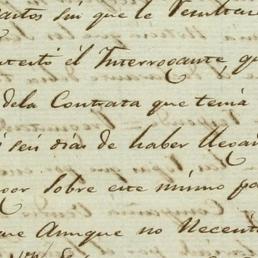 sin que le
el Interrogante, qu
dela Contrata que tenia
seis dias de haber llega
sobre este mismo pa
que Aunque no Necesit